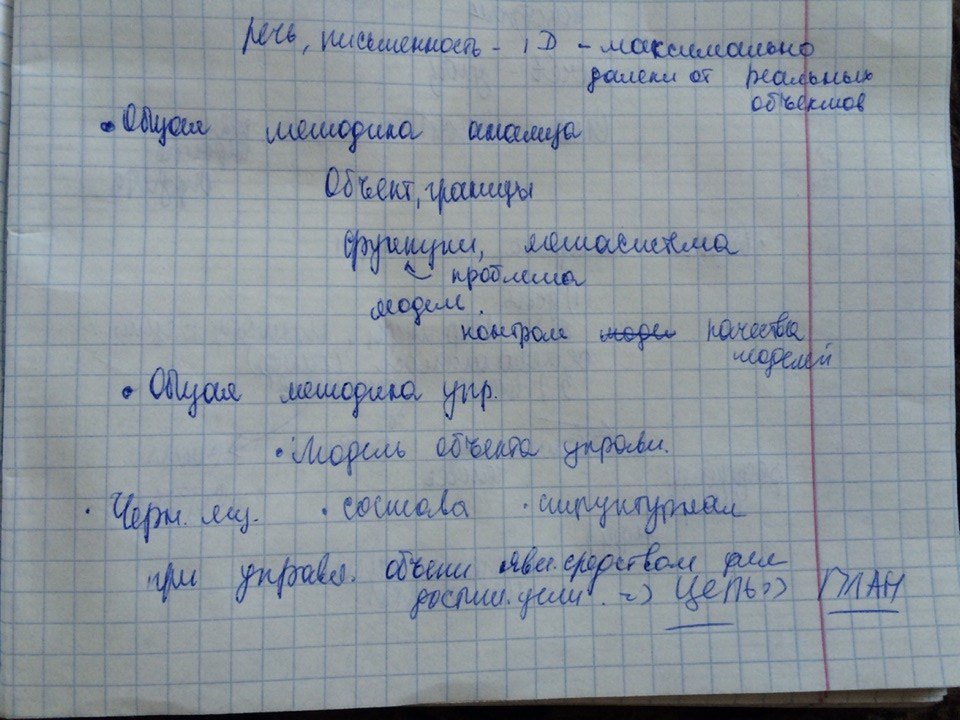 речь, письменность - 1D - максимально
далеки от реальных
объектов
• Общая методика анализа
Объект, границы
функции, метасистема
проблема
модел.
контрол модел качества
моделей
• Общая методика упр.
• Модель объекта управл.
• Черн. ящ. • состава • структурная
при управл. объект явл. средством для
достиж. цели. => ЦЕЛЬ => ПЛАН